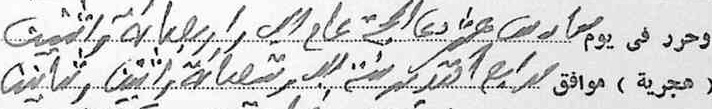 وحرر فى يوم سادس عشر ذى الحجة عام الف واربعمائة واثنين
( هجرية ) موافق رابع اكتوبر سنة الف وتسعمائة واثنين وثمانين